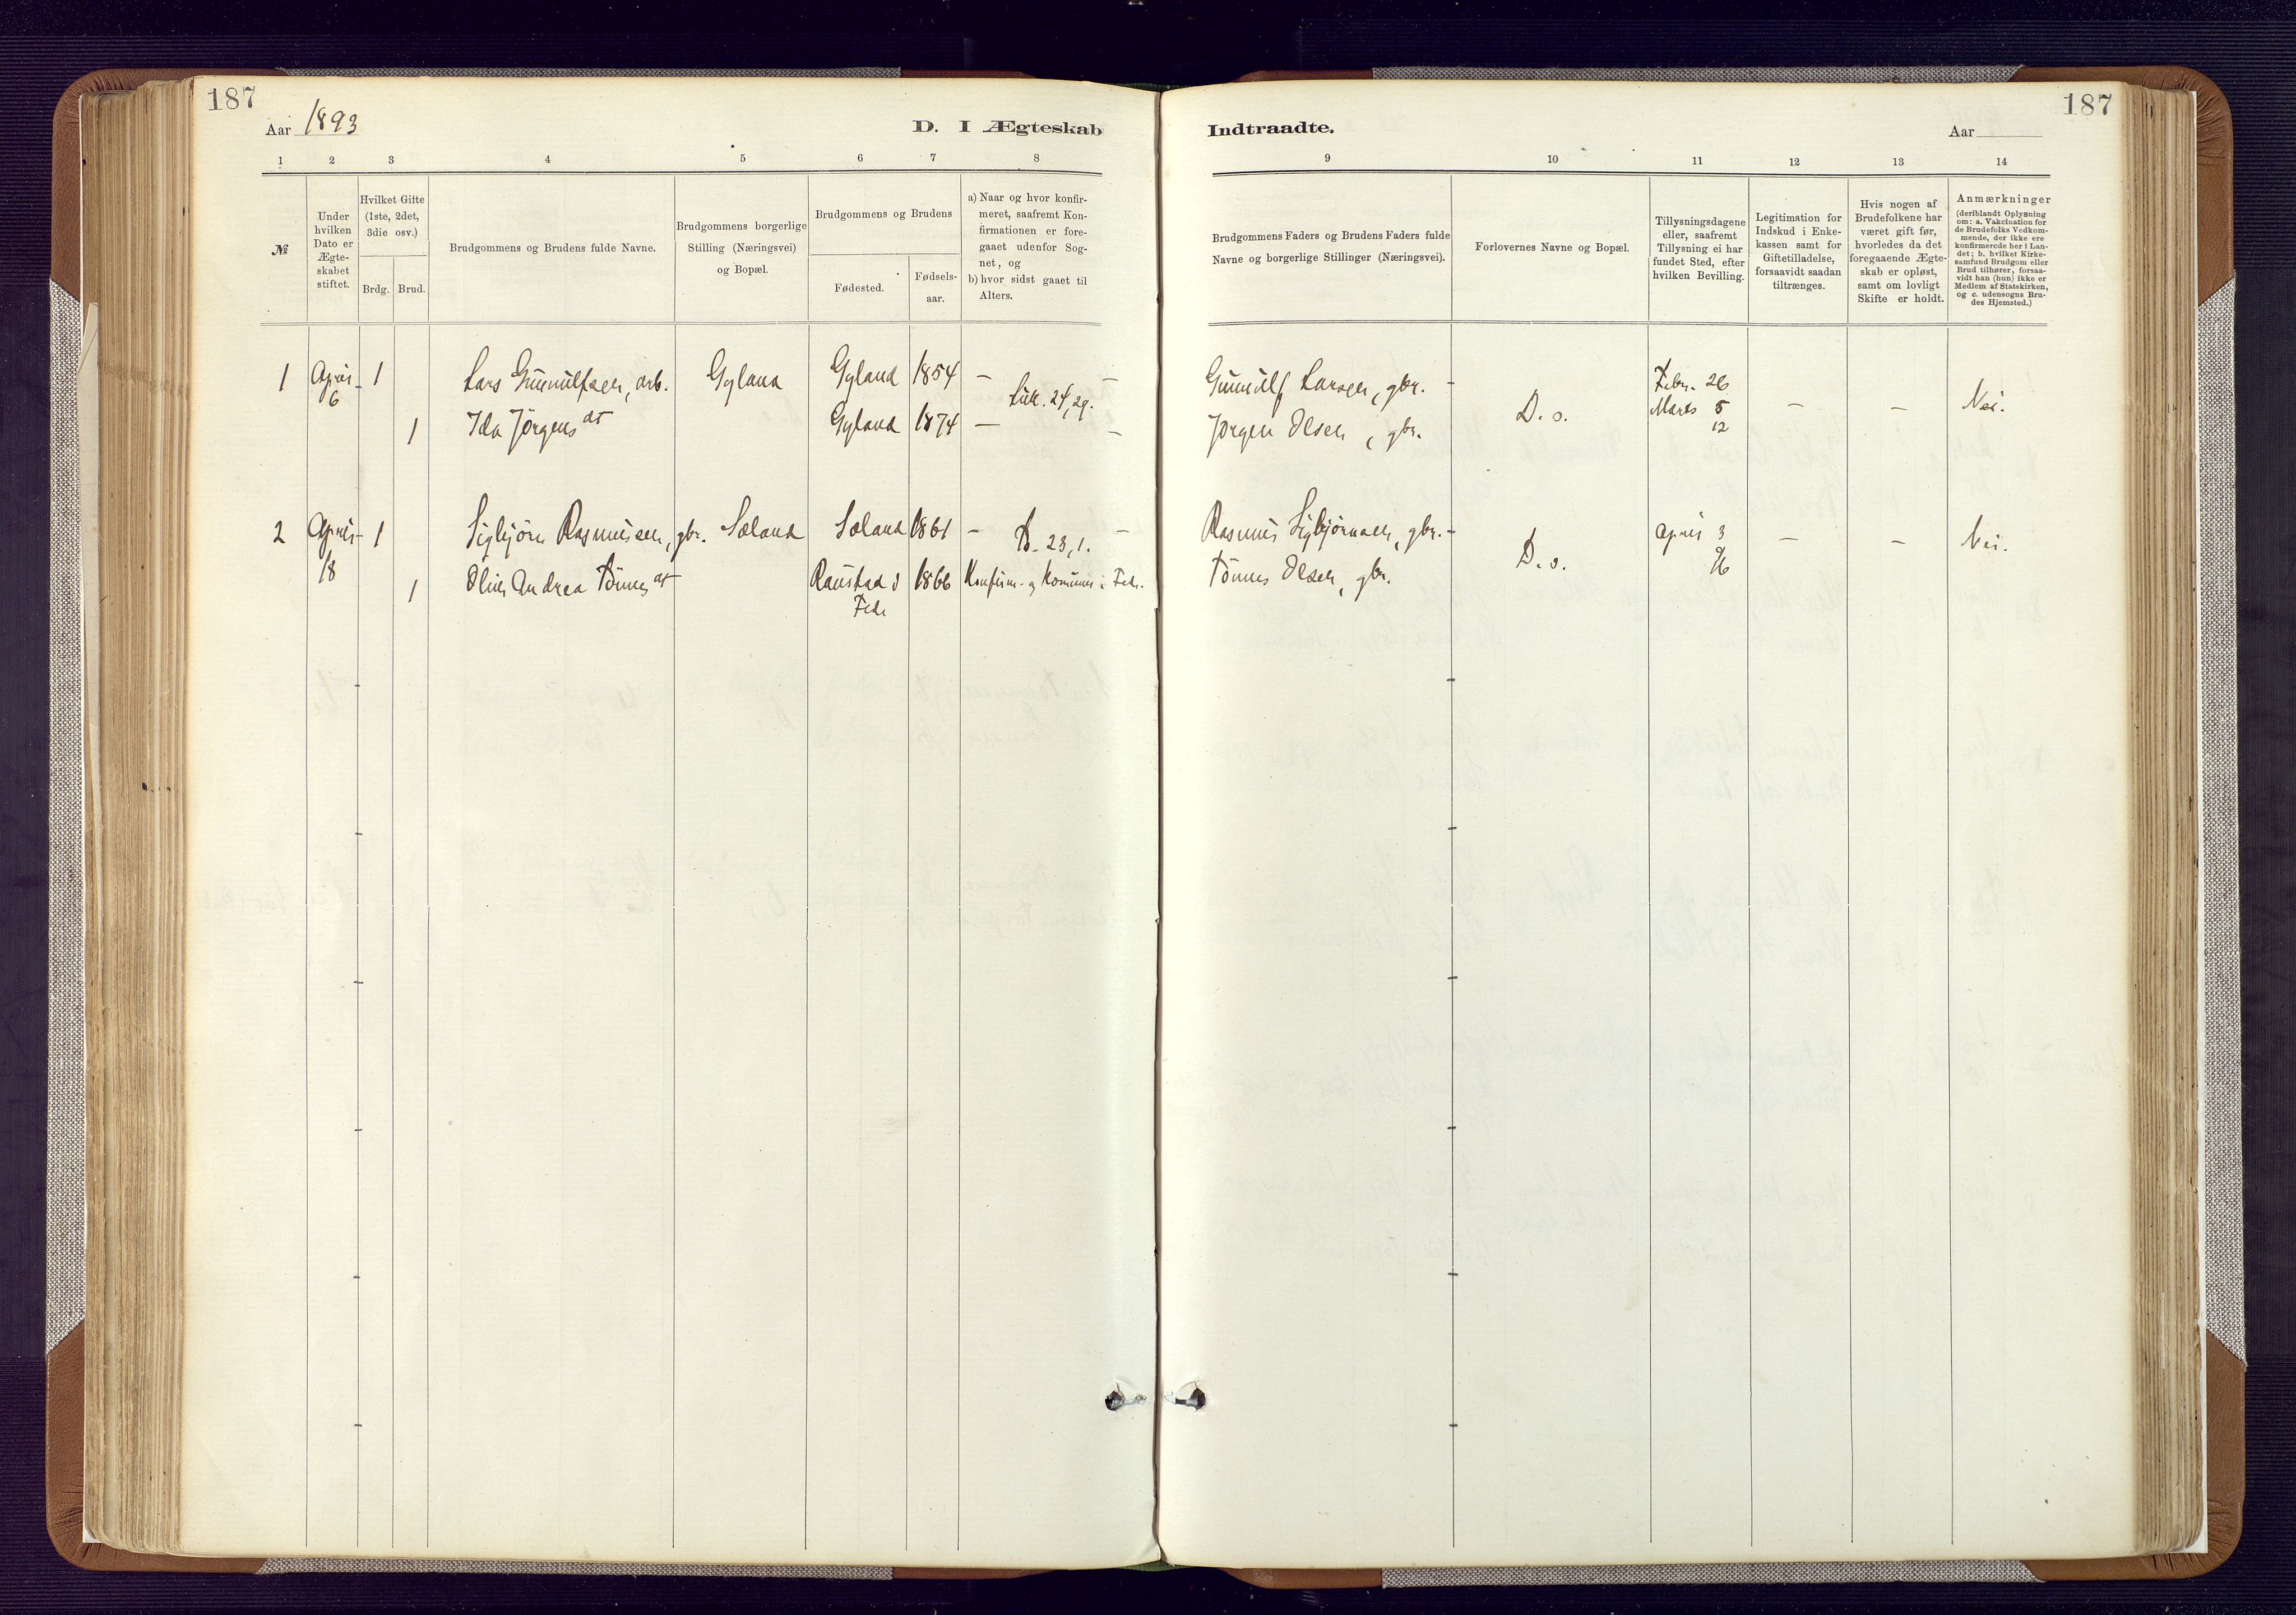 187
Aar 1893
D. I Ægteskab
Indtraadte.
Aar
187
1 2 3 4 5 6 7 8
9 10 11 12 13 14
№
Under
hvilken
Dato er
Ægte-
skabet
stiftet.
Hvilket Gifte
(1ste, 2det,
3die osv.)
Brdg. Brud.
Brudgommens og Brudens fulde Navne.
Brudgommens borgerlige
Stilling (Næringsvei)
og Bopæl.
Brudgommens og Brudens
Fødested.
Fødsels-
aar.
a) Naar og hvor konfir-
meret, saafremt Kon-
firmationen er fore-
gaaet udenfor Sog-
net, og
b) hvor sidst gaaet til
Alters.
Brudgommens Faders og Brudens Faders fulde
Navne og borgerlige Stillinger (Næringsvei).
Forlovernes Navne og Bopæl.
Tillysningsdagene
eller, saafremt
Tillysning ei har
fundet Sted, efter
hvilken Bevilling.
Legitimation for
Indskud i Enke-
kassen samt for
Giftetilladelse,
forsaavidt saadan
tiltrænges.
Hvis nogen af
Brudefolkene har
været gift før,
hvorledes da det
foregaaende Ægte-
skab er opløst,
samt om lovligt
Skifte er holdt.
Anmærkninger
(deriblandt Oplysning
om: a. Vakcination for
de Brudefolks Vedkom-
mende, der ikke ere
konfirmerede her i Lan-
det; b. hvilket Kirke-
samfund Brudgom eller
Brud tilhører, forsaa-
vidt han (hun) ikke er
Medlem af Statskirken,
og c. udensogns Bru-
des Hjemsted.)
1 April 6 1 Lars Gunnulfsen, arb. Gyland Gyland 1854 – Luk. 24,29. –
1 Ida Jørgensdt Gyland 1874 – –
Gunnulf Larsen, gbr. – D. o. Febr. 26 – – Nei.
Jørgen Olsen, gbr. Marts 5
12
2 April 18 1 Sigbjørn Rasmussen, gbr. Sæland Sæland 1861 – 23,1. –
1 Andrea Tønnesdt i Fede 1866 Konfirm. og i Fede.
Rasmus Sigbjørnsen, gbr. – D. o. April 3 – – Nei.
Tønnes Olsen, gbr. 9
16